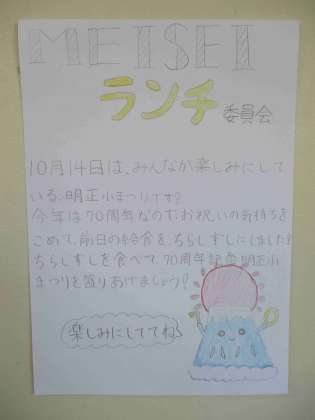 MEISEI
ランチ委員会
10月14日は、みんなが楽しみにして
いる、明正小まつりです!
今年は70周年なので、お祝いの気持ちを
こめて、前日の給食を、ちらしずしにしました!
ちらしずしを食べて、70周年記念明正小
まつりを盛りあげましょう!
楽しみにしててね